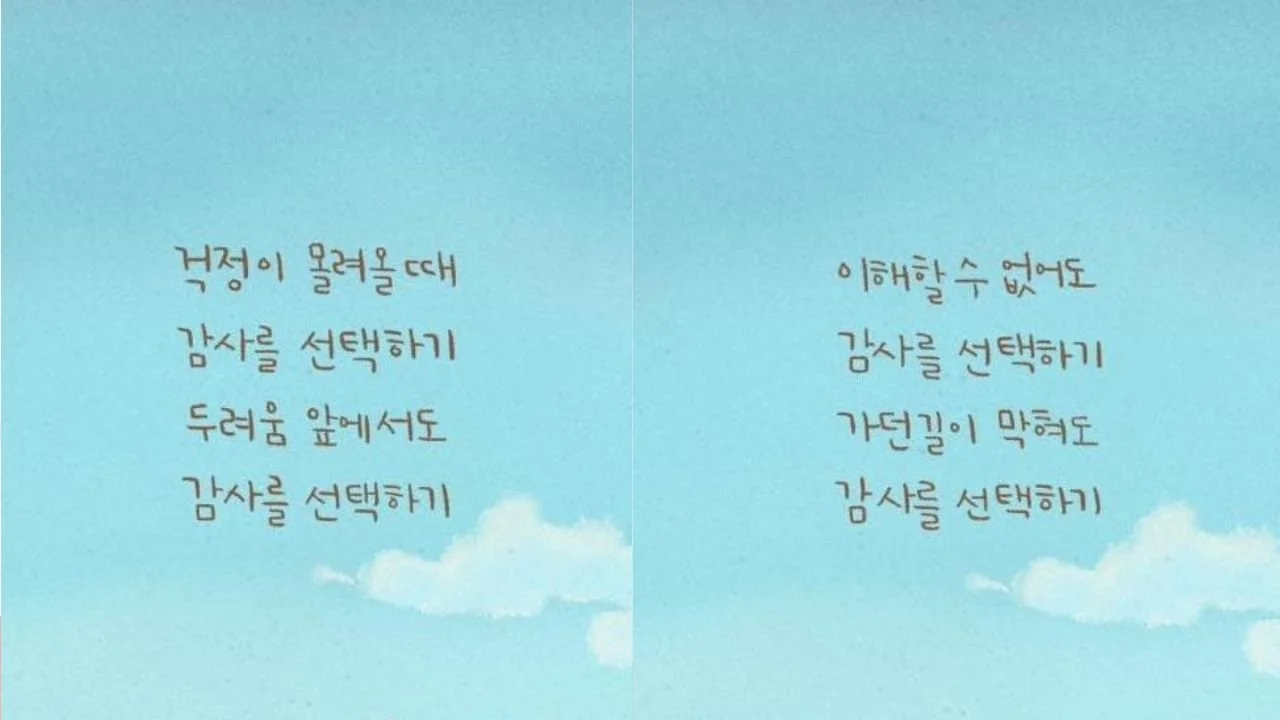 걱정이 몰려올때
감사를 선택하기
두려움 앞에서도
감사를 선택하기
이해할 수 없어도
감사를 선택하기
가던길이 막혀도
감사를 선택하기